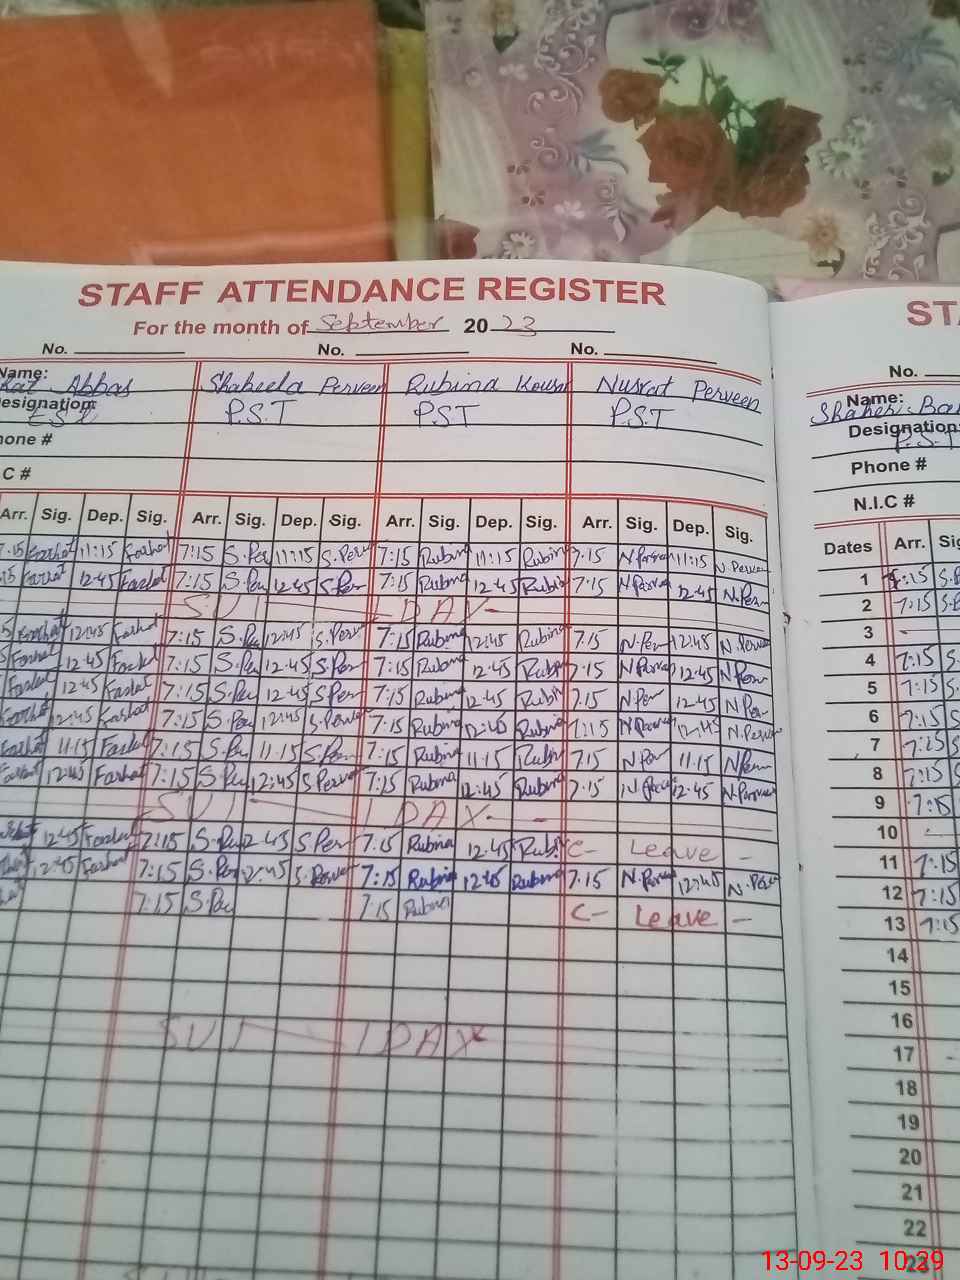 STAFF ATTENDANCE REGISTER
For the month of September 2023
No. No. No.
Name: Abbas Shaheela Perveen Rubina Kousar Nusrat Perveen
Designation: P.S.T P.S.T P.S.T
Phone #
C #
Arr. Sig. Dep. Sig. Arr. Sig. Dep. Sig. Arr. Sig. Dep. Sig. Arr. Sig. Dep. Sig.
7.15 Farhat 11:15 Farhat 7:15 S.Per 11:15 S.Perv 7:15 Rubina 11:15 Rubina 7.15 N.Perve 11:15 N.Perven
15 Farhat 12.45 Farhat 7:15 S.Per 12.45 S.Per 7:15 Rubina 12.45 Rubin 7.15 N.Perve 12.45 N.Per
SUN DAY
Farhat 12:45 Farhat 7:15 S.Per 12:45 S.Perv 7:15 Rubina 12:45 Rubina 7.15 N.Per 12:45 N.Perve
Farhat 12.45 Farhat 7:15 S.Per 12.45 S.Per 7:15 Rubina 12.45 Rubi 7.15 N.Perve 12.45 N.Per
Farhat 12.45 Farhat 7:15 S.Per 12.45 S.Per 7:15 Rubina 12.45 Rubin 7.15 N.Per 12.45 N.Per
Farhat 12:45 Farhat 7:15 S.Per 12:45 S.Perve 7:15 Rubina 12:45 Rubina 7:15 N.Perve 12:45 N.Perve
Farhat 11.15 Farhat 7:15 S.Per 11.15 S.Per 7:15 Rubina 11.15 Rubin 7.15 N.Per 11.15 N.Per
Farhat 12:45 Farhat 7:15 S.Per 12:45 S.Perve 7:15 Rubina 12:45 Rubina 7.15 N.Perve 12.45 N.Perve
SUN DAY
12.45 Farhat 7:15 S.Per 12.45 S.Per 7.15 Rubina 12.45 Rubi C- Leave -
12.45 Farhat 7:15 S.Per 12:45 S.Perve 7:15 Rubina 12:45 Rubina 7.15 N.Perve 12:45 N.Perv
7:15 S.Per 7:15 Rubina C- Leave -
SUN DAY
ST
No.
Name:
Designation: P.S.T
Phone #
N.I.C #
Dates Arr.
1 7:15
2 7:15
3
4 7:15
5 7:15
6 7:15
7 7:15
8 7:15
9 7:15
10
11 7:15
12 7:15
13 7:15
14
15
16
17
18
19
20
21
22
23
13-09-23 10:29